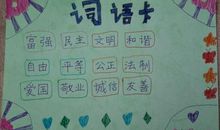 词语卡
富强 民主 文明 和谐
自由 平等 公正 法制
爱国 敬业 诚信 友善